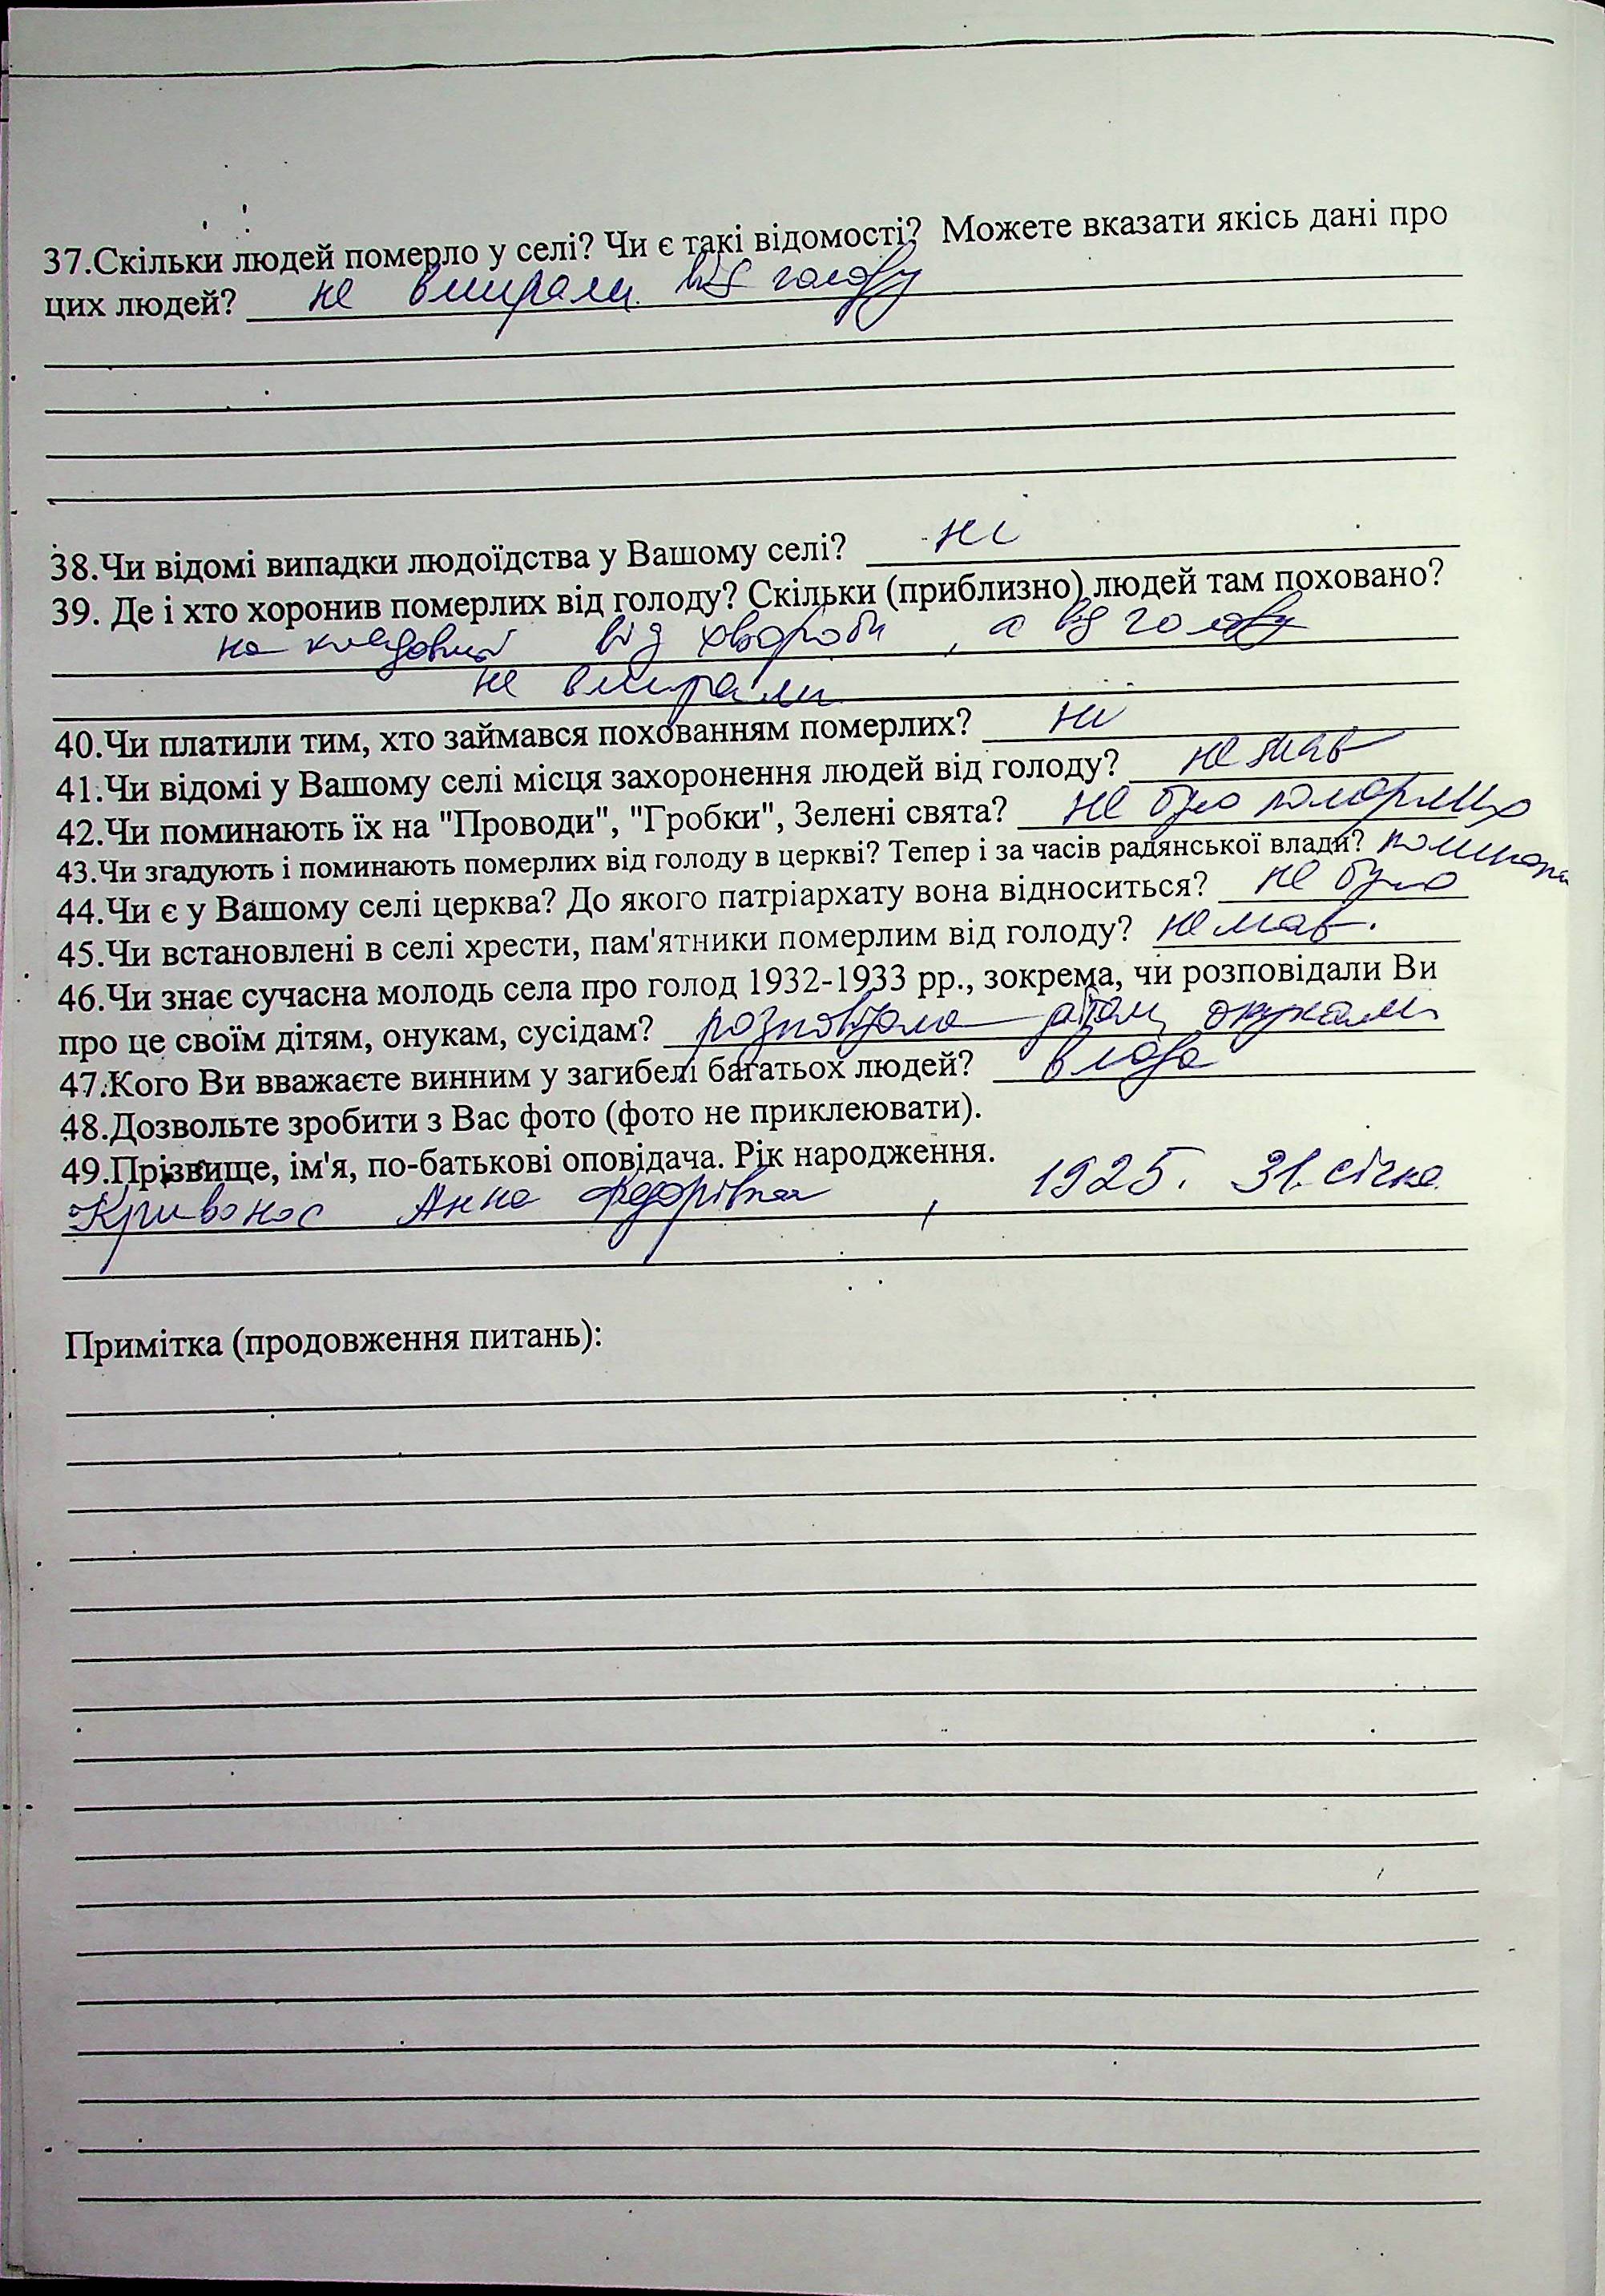 37.Скільки людей померло у селі? Чи є такі відомості? Можете вказати якісь дані про
цих людей? не вмирали від голоду
38.Чи відомі випадки людоїдства у Вашому селі? ні
39. Де і хто хоронив померлих від голоду? Скільки (приблизно) людей там поховано?
на кладовищі від хвороби, а від голоду
не вмирали
40.Чи платили тим, хто займався похованням померлих? ні
41.Чи відомі у Вашому селі місця захоронення людей від голоду? немає
42.Чи поминають їх на "Проводи", "Гробки", Зелені свята? не було померлих
43.Чи згадують і поминають померлих від голоду в церкві? Тепер і за часів радянської влади?
44.Чи є у Вашому селі церква? До якого патріархату вона відноситься? не було
45.Чи встановлені в селі хрести, пам'ятники померлим від голоду? немає.
46.Чи знає сучасна молодь села про голод 1932-1933 рр., зокрема, чи розповідали Ви
про це своїм дітям, онукам, сусідам? розповідала дітям, онукам
47.Кого Ви вважаєте винним у загибелі багатьох людей? влада
48.Дозвольте зробити з Вас фото (фото не приклеювати).
49.Прізвище, ім'я, по-батькові оповідача. Рік народження.
Кривонос Анна Федорівна, 1925. 31. січня
Примітка (продовження питань):